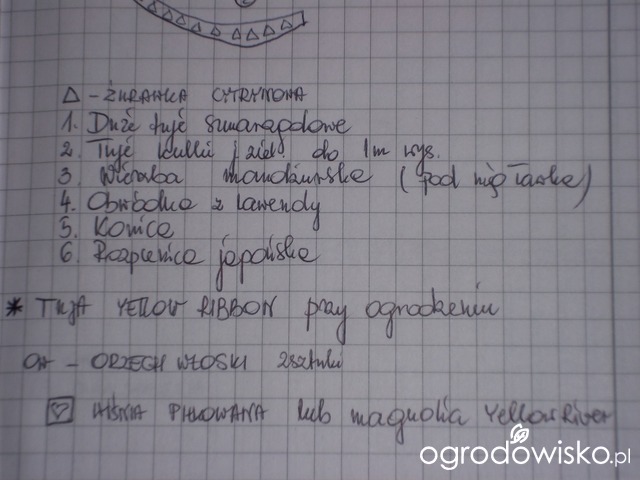 △ - ŻURAWKA CYTRYNOWA
1. Duże tuje szmaragdowe
2. Tuje kulki j. ziel. do 1m wys.
3. Wierzba mandżurska (pod nią ławka)
4. Obwódka z lawendy
5. Konica
6. Rozplenica japońska
* TUJA YELLOW RIBBON przy ogrodzeniu
OW - ORZECH WŁOSKI 2 sztuki
WIŚNIA PIŁKOWANA lub magnolia Yellow River
ogrodowisko.pl